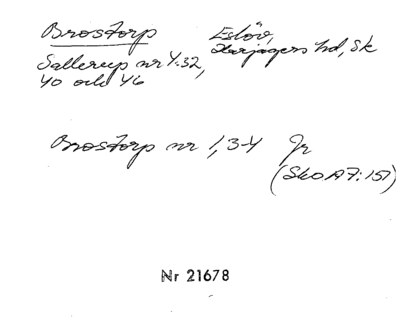 Brostorp Eslöv,
Sallerup nr 4:32, Harjagers hd, Sk
40 och 46
Brostorp nr 1, 3-4 Jr
(SkOA7:151)
Nr 21678